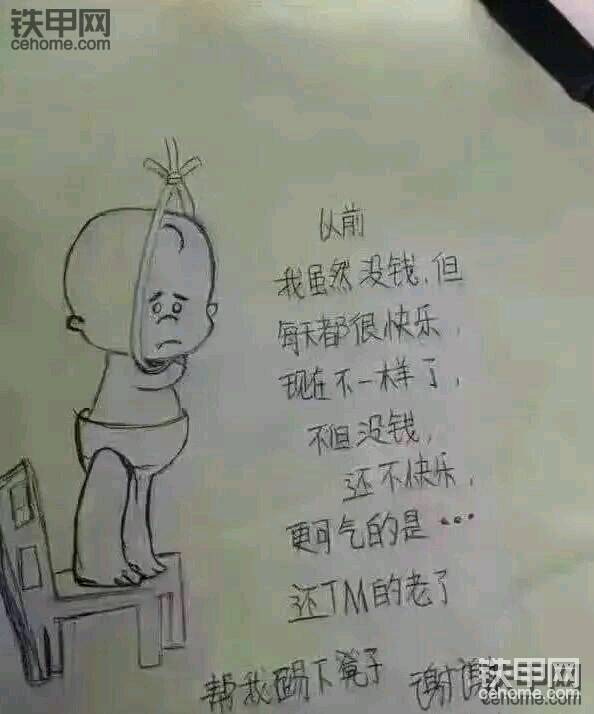 铁甲网
cehome.com
以前
我虽然没钱，但
每天都很快乐，
现在不一样了，
不但没钱，
还不快乐，
更可气的是…
还TM的老了
帮我踢下凳子 谢谢
铁甲网
cehome.com